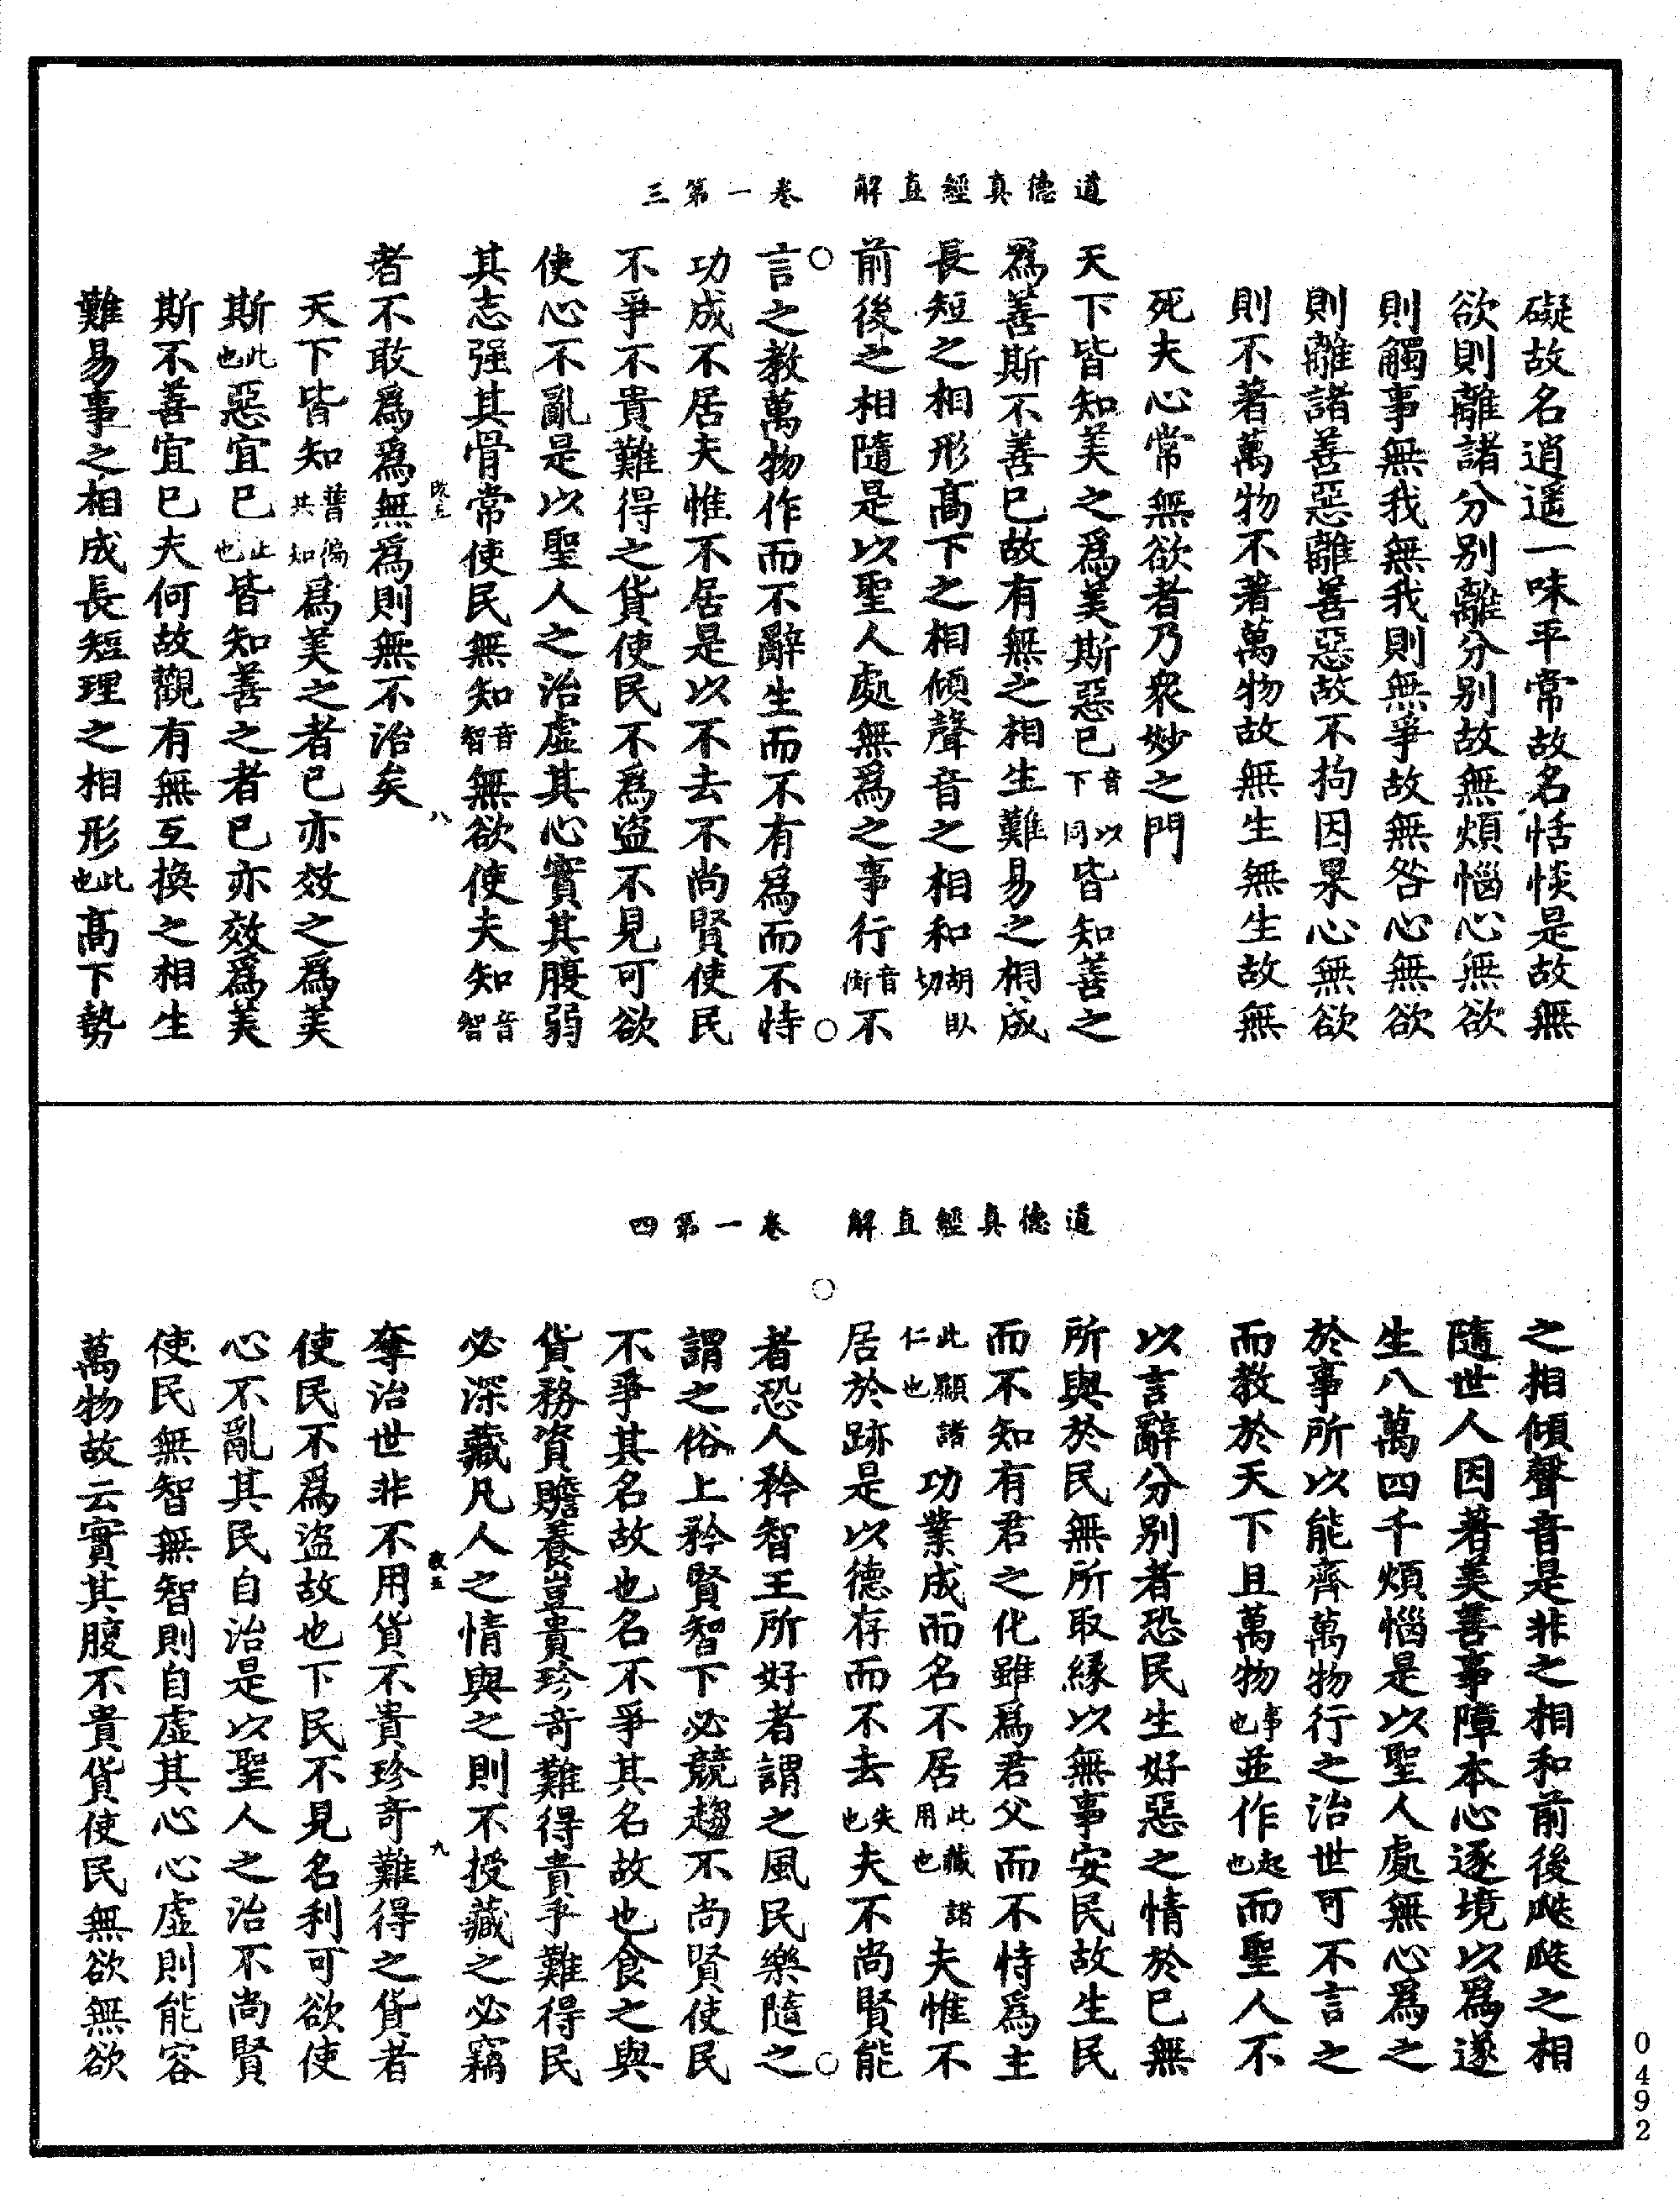 道德真經直解　卷一第三
礙故名逍遥一味平常故名恬惔是故無
欲則離諸分别離分别故無煩惱心無欲
則觸事無我無我則無爭故無咎心無欲
則離諸善惡離善惡故不拘因果心無欲
則不著萬物不著萬物故無生無生故無
死夫心常無欲者乃衆妙之門
天下皆知美之爲美斯惡已音以下同皆知善之
爲善斯不善已故有無之相生難易之相成
長短之相形髙下之相傾聲音之相和胡臥切
前後之相隨是以聖人處無爲之事行音衡不
言之教萬物作而不辭生而不有爲而不恃
功成不居夫惟不居是以不去不尚賢使民
不爭不貴難得之貨使民不爲盜不見可欲
使心不亂是以聖人之治虚其心實其腹弱
其志强其骨常使民無知音智無欲使夫知音智
八
者不敢爲爲無爲則無不治矣
天下皆知普徧共知爲美之者已亦效之爲美
斯此也惡宜已止也皆知善之者已亦效爲美
斯不善宜已夫何故觀有無互換之相生
難易事之相成長短理之相形此也髙下勢
道德真經直解　卷一第四
之相傾聲音是非之相和前後飈飈之相
隨世人因著美善事障本心逐境以爲遂
生八萬四千煩惱是以聖人處無心爲之
於事所以能齊萬物行之治世可不言之
而教於天下且萬物事也並作起也而聖人不
以言辭分别者恐民生好惡之情於已無
所與於民無所取緣以無事安民故生民
而不知有君之化雖爲君父而不恃爲主
此顯諸仁也功業成而名不居此藏諸用也夫惟不
居於跡是以德存而不去失也夫不尚賢能
者恐人矜智王所好者謂之風民樂隨之
謂之俗上矜賢智下必競趨不尚賢使民
不爭其名故也名不爭其名故也食之與
貨務資贍養豈貴珍奇難得貴爭難得民
必深藏凡人之情與之則不授藏之必竊
九
奪治世非不用貨不貴珍奇難得之貨者
使民不爲盜故也下民不見名利可欲使
心不亂其民自治是以聖人之治不尚賢
使民無智無智則自虚其心心虚則能容
萬物故云實其腹不貴貨使民無欲無欲
0492